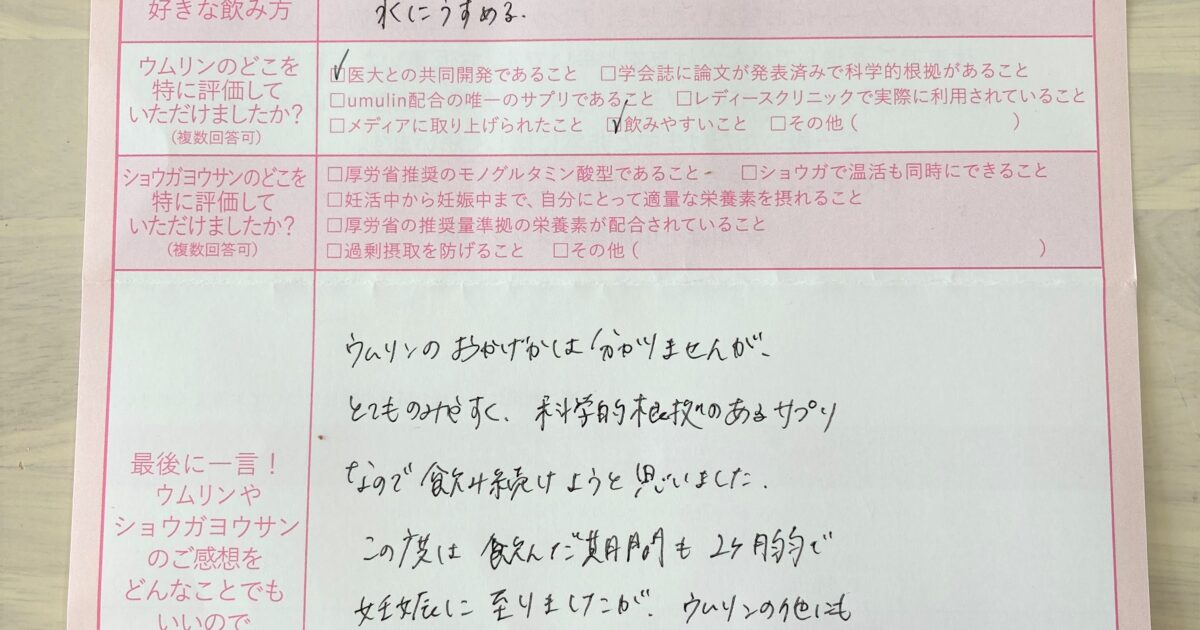 好きな飲み方
水にうすめる.
ウムリンのどこを
特に評価して
いただけましたか?
(複数回答可)
□医大との共同開発であること □学会誌に論文が発表済みで科学的根拠があること
□umulin配合の唯一のサプリであること □レディースクリニックで実際に利用されていること
□メディアに取り上げられたこと □飲みやすいこと □その他 ( )
ショウガヨウサンのどこを
特に評価して
いただけましたか?
(複数回答可)
□厚労省推奨のモノグルタミン酸型であること □ショウガで温活も同時にできること
□妊活中から妊娠中まで、自分にとって適量な栄養素を摂れること
□厚労省の推奨量準拠の栄養素が配合されていること
□過剰摂取を防げること □その他 ( )
最後に一言!
ウムリンや
ショウガヨウサン
のご感想を
どんなことでも
いいので
ウムリンのおかげかは分かりませんが、
とてものみやすく、科学的根拠のあるサプリ
なので飲み続けようと思いました.
この度は飲んだ期間も2ヶ月弱で
妊娠に至りましたが、ウムリンの他にも